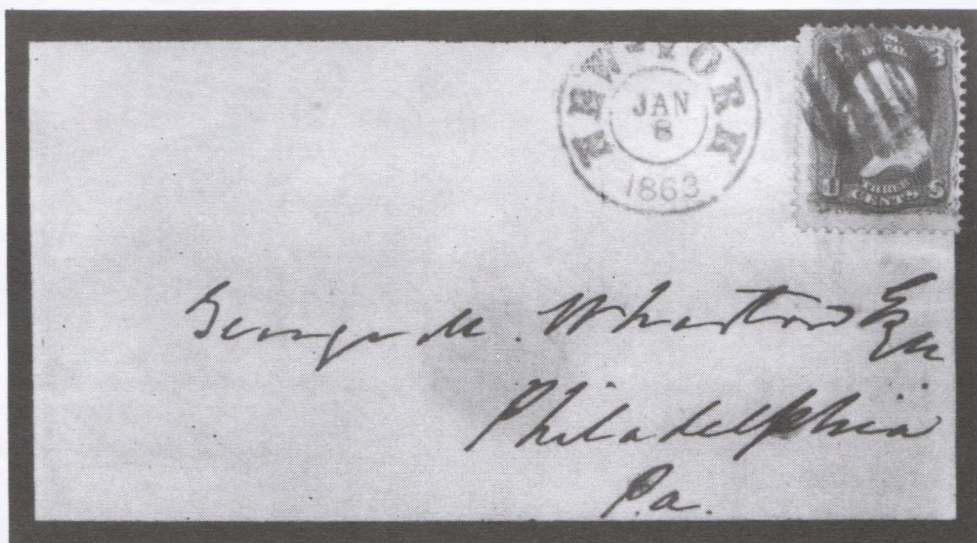 NEW-YORK
JAN
8
1863
3 3
U S
THREE
CENTS
George M. Wharton Esq
Philadelphia
Pa.